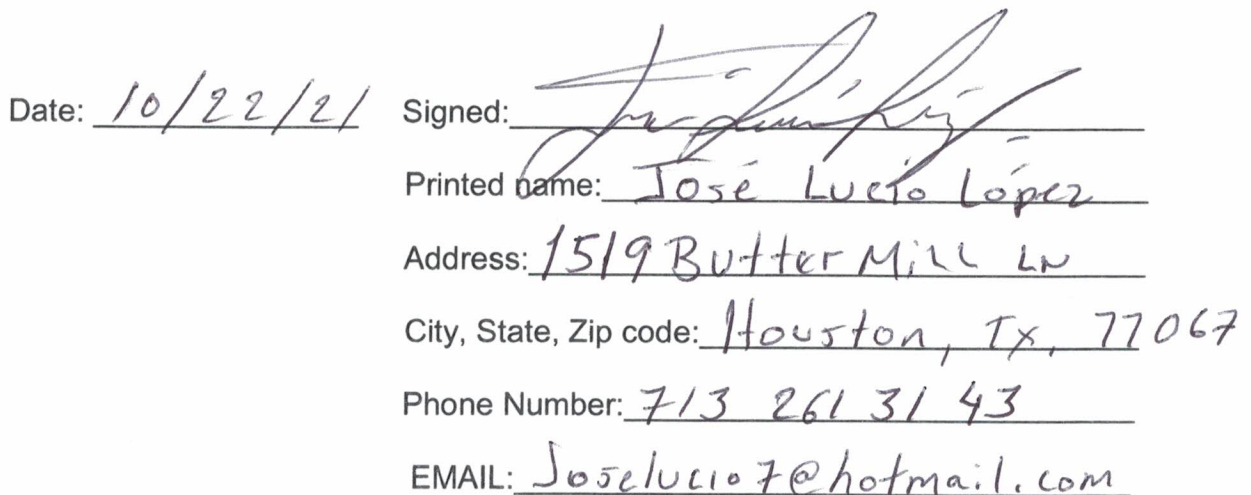 Date: 10/22/21 Signed:
Printed name: José Lucio López
Address: 1519 Butter Mill LN
City, State, Zip code: Houston, Tx, 77067
Phone Number: 713 261 31 43
EMAIL: Joselucio7@hotmail.com